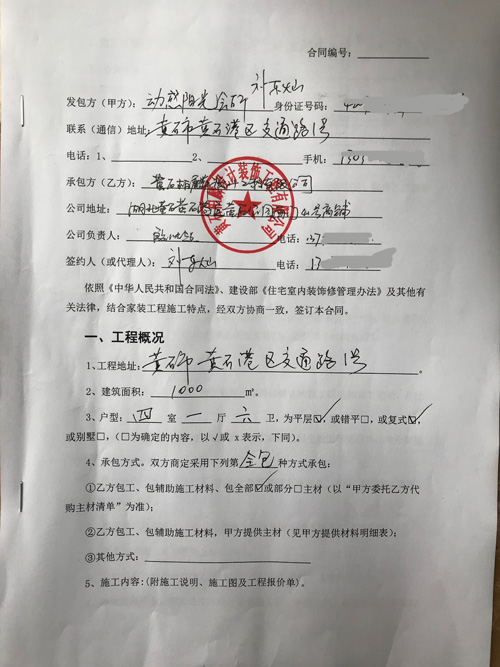 合同编号：
发包方（甲方）：动感阳光会所 身份证号码：
联系（通信）地址：黄石市黄石港区交通路1号
电话：1、 2、 手机：
承包方（乙方）：黄石
公司地址：湖北黄石黄石港
公司负责人： 电话：
签约人（或代理人）： 电话：
依照《中华人民共和国合同法》、建设部《住宅室内装饰修管理办法》及其他有
关法律，结合家装工程施工特点，经双方协商一致，签订本合同。
一、工程概况
1、工程地址：黄石市黄石港区交通路1号。
2、建筑面积：1000 m²。
3、户型：四室一厅六卫，为平层☑，或错平□，或复式☑，
或别墅□，（□为确定的内容，以√或 x 表示，下同）。
4、承包方式。双方商定采用下列第全包种方式承包：
①乙方包工、包辅助施工材料、包全部☑或部分□主材（以“甲方委托乙方代
购主材清单”为准）；
②乙方包工、包辅助施工材料，甲方提供主材（见甲方提供材料明细表）；
③其他方式：
5、施工内容：(附施工说明、施工图及工程报价单)。